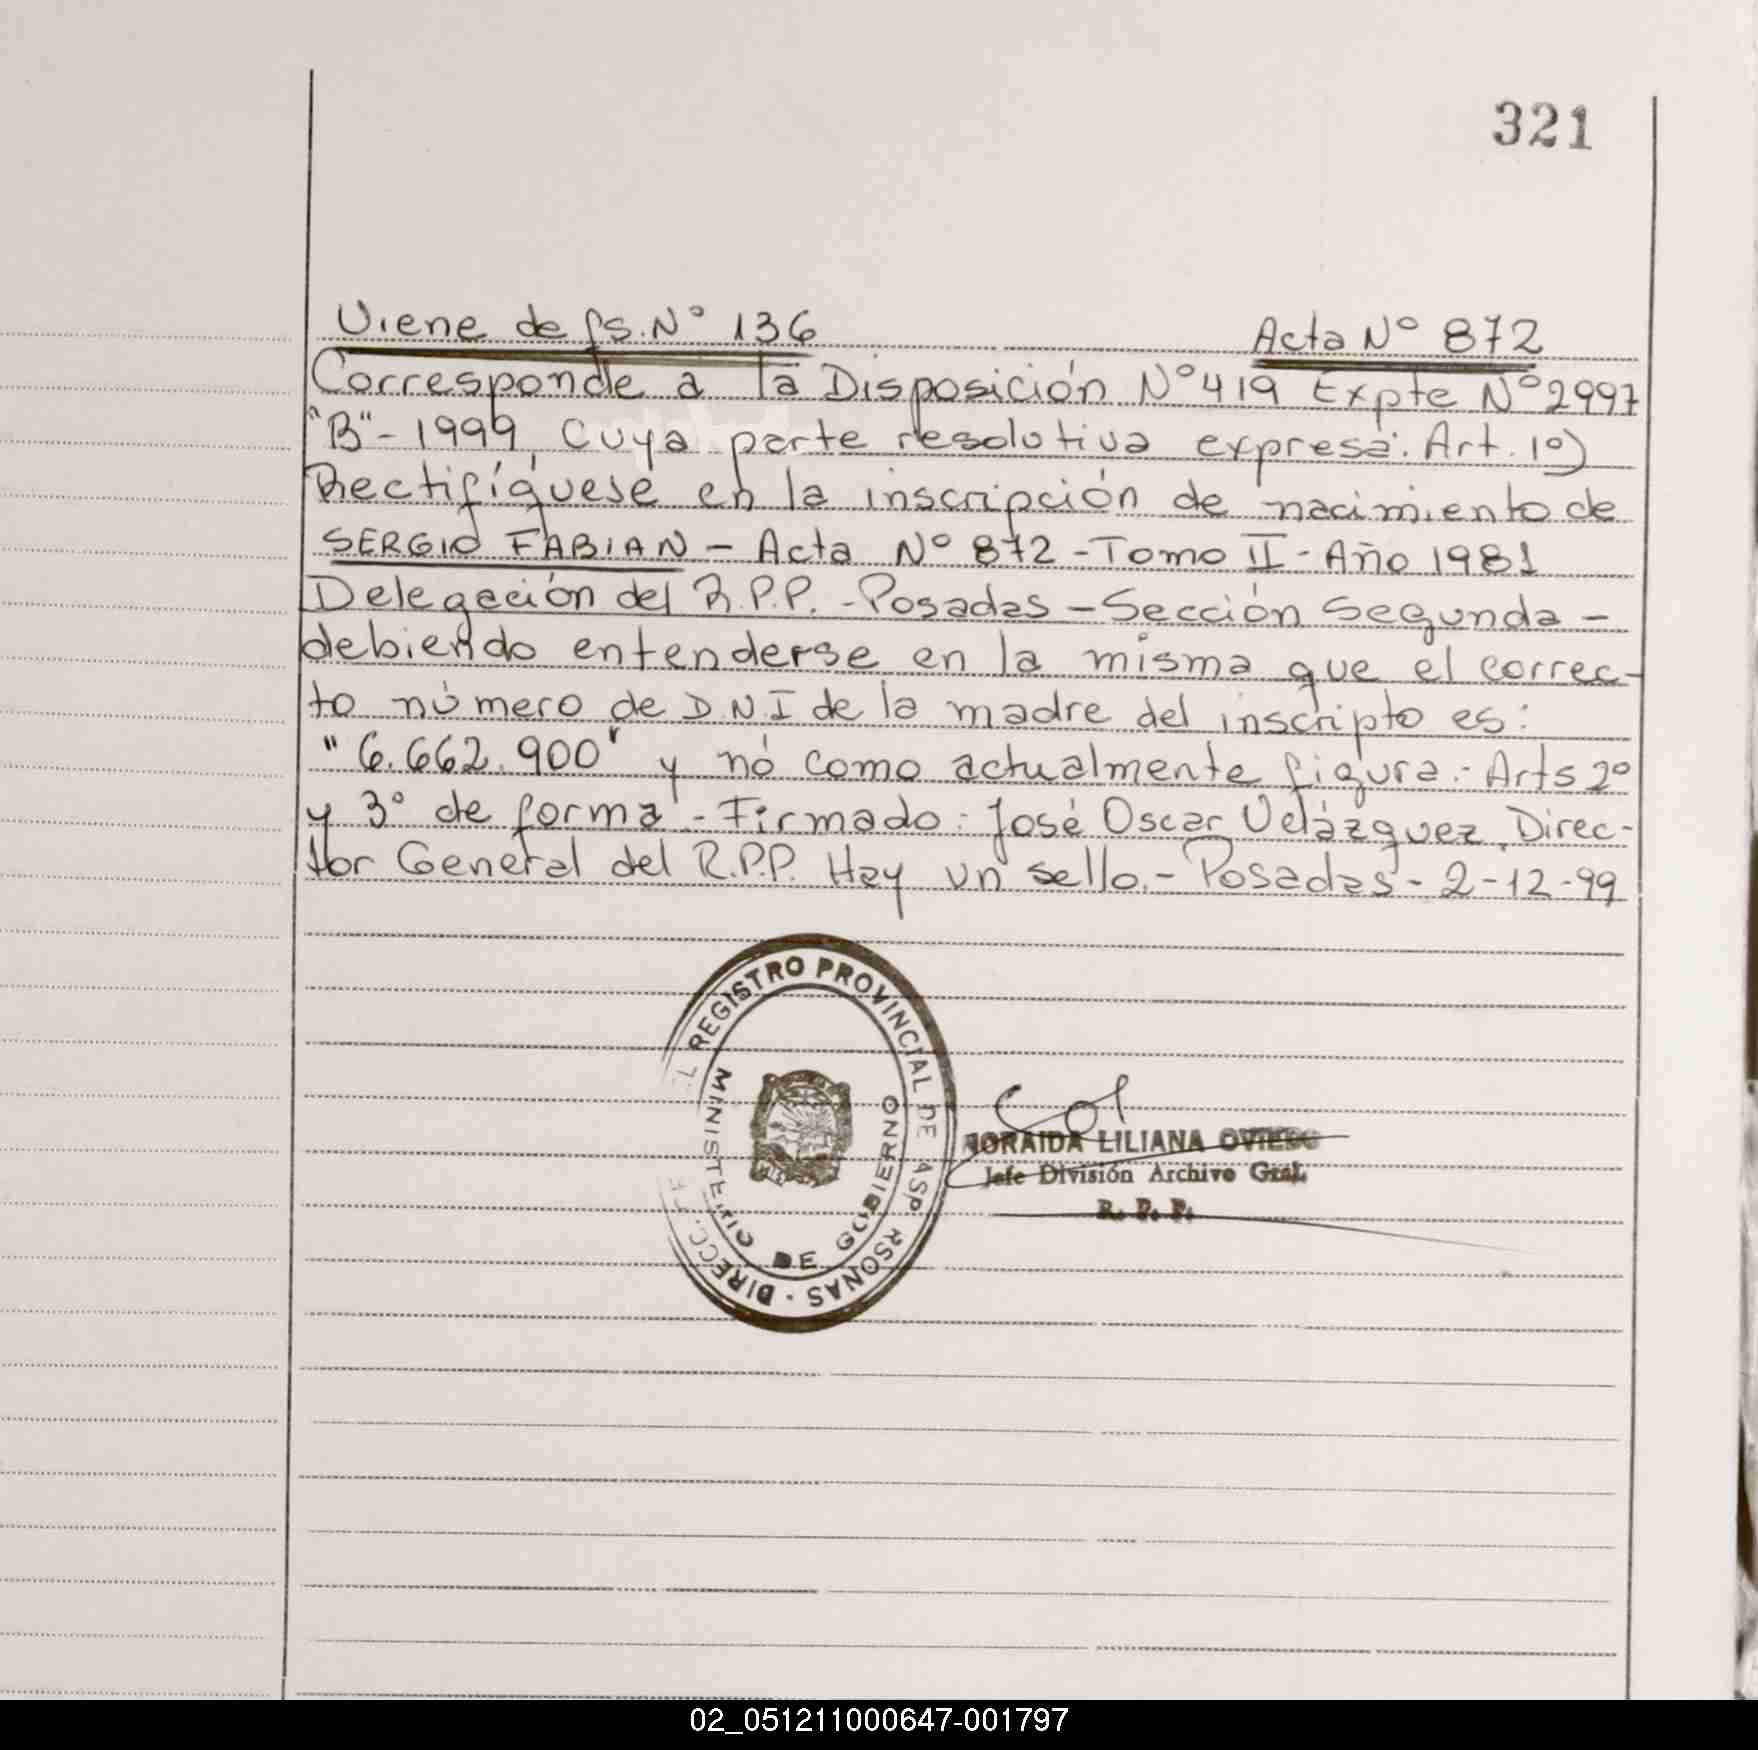 321
Viene de fs. Nº 136 Acta Nº 872
Corresponde a la Disposición Nº 419 Expte Nº 2997
"B" - 1999, cuya parte resolutiva expresa: Art. 1º)
Rectifíquese en la inscripción de nacimiento de
SERGIO FABIAN - Acta Nº 872 - Tomo II - Año 1981
Delegación del R.P.P. - Posadas - Sección Segunda -
debiendo entenderse en la misma que el correc-
to número de D.N.I de la madre del inscripto es:
"6.662.900" y nó como actualmente figura.- Arts 2º
y 3º de forma - Firmado: José Oscar Velázquez, Direc-
tor General del R.P.P. Hay un sello.- Posadas - 2-12-99
REGISTRO PROVINCIAL DE LAS PERSONAS - DIRECC
MINISTERIO DE GOBIERNO
ZORAIDA LILIANA OVIEDO
Jefe División Archivo Gral.
R. P. P.
02_051211000647-001797